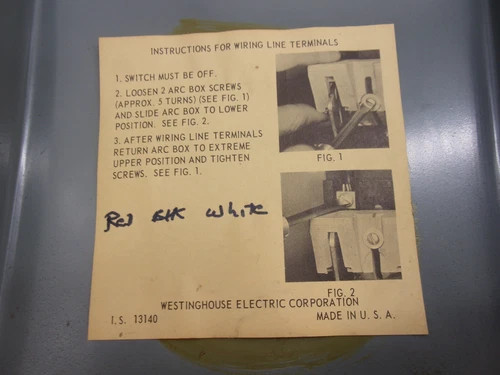 INSTRUCTIONS FOR WIRING LINE TERMINALS
1. SWITCH MUST BE OFF.
2. LOOSEN 2 ARC BOX SCREWS
(APPROX. 5 TURNS) (SEE FIG. 1)
AND SLIDE ARC BOX TO LOWER
POSITION. SEE FIG. 2.
3. AFTER WIRING LINE TERMINALS
RETURN ARC BOX TO EXTREME
UPPER POSITION AND TIGHTEN
SCREWS. SEE FIG. 1.
FIG. 1
Red White
FIG. 2
WESTINGHOUSE ELECTRIC CORPORATION
I.S. 13140 MADE IN U. S. A.